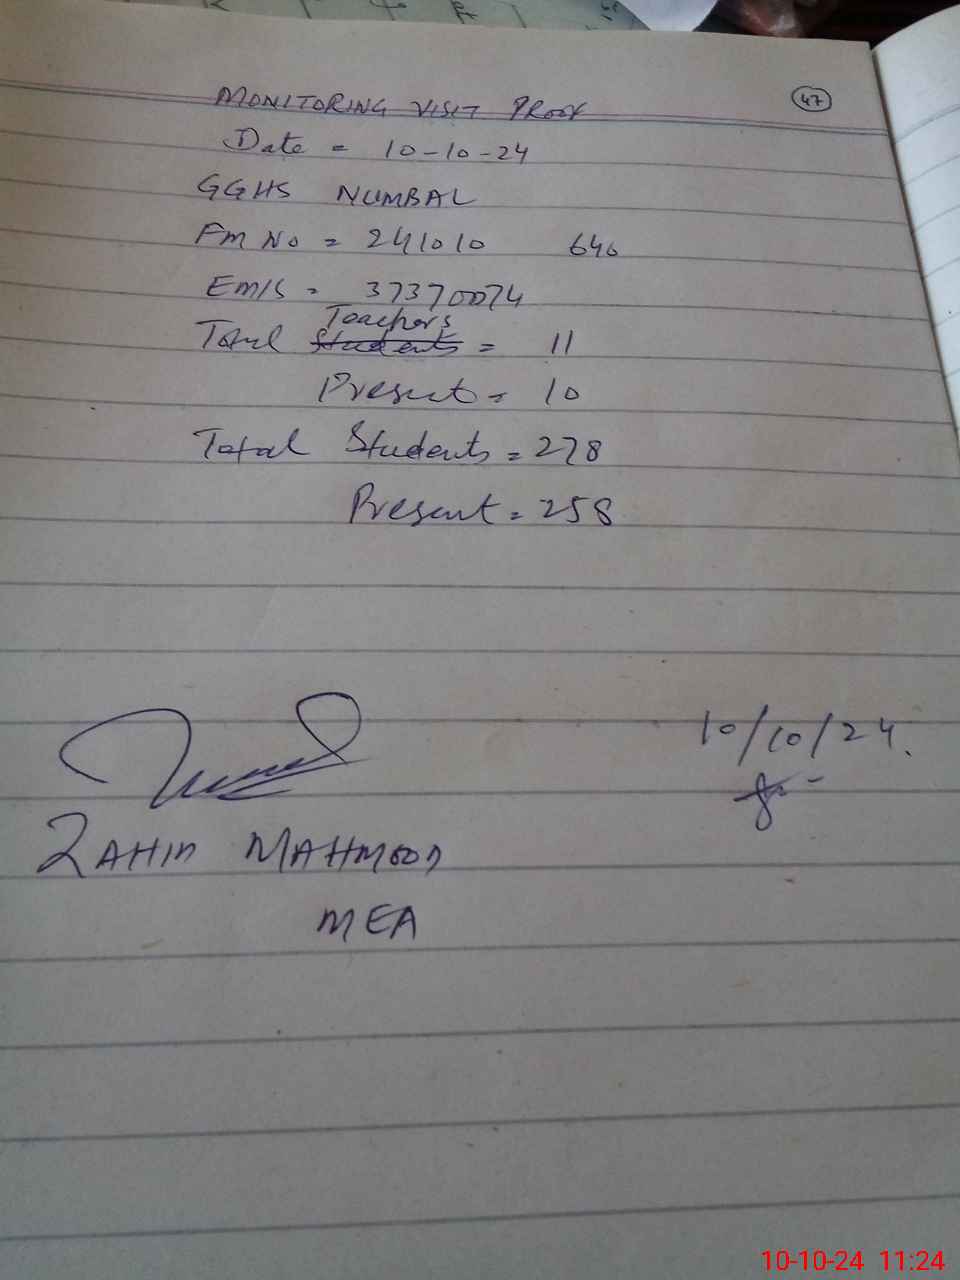 MONITORING VISIT PROOF
47
Date = 10-10-24
GGHS NUMBAL
FM No = 241010 646
EMIS = 37370074
Teachers
Total Students = 11
Present = 10
Total Students = 278
Present = 258
10/10/24.
ZAHID MAHMOOD
MEA
10-10-24 11:24